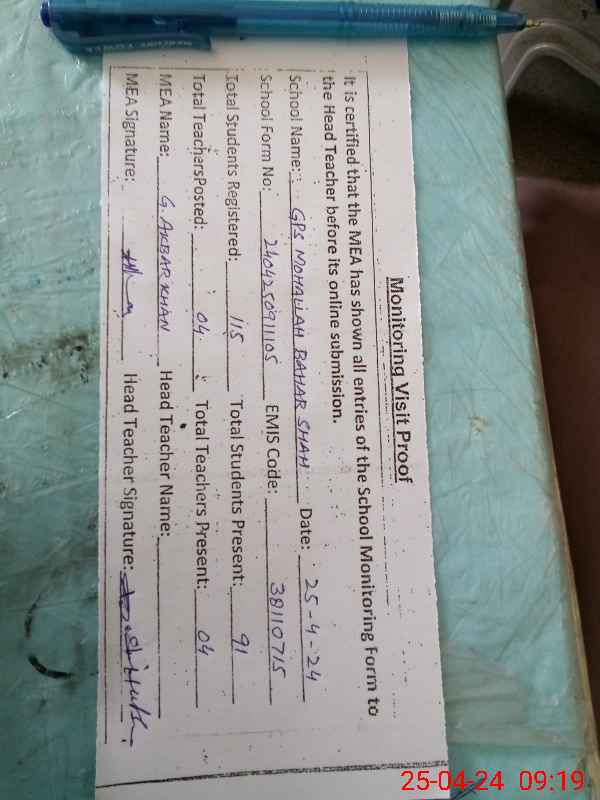 Monitoring Visit Proof
It is certified that the MEA has shown all entries of the School Monitoring Form to
the Head Teacher before its online submission.
School Name: GPS MOHALLAH BAHAR SHAH Date: 25-4-24
School Form No: 240425091105 EMIS Code: 38110715
Total Students Registered: 115 Total Students Present: 91
Total TeachersPosted: 04 Total Teachers Present: 04
MEA Name: G. AKBAR KHAN Head Teacher Name:
MEA Signature: Head Teacher Signature:
25-04-24 09:19